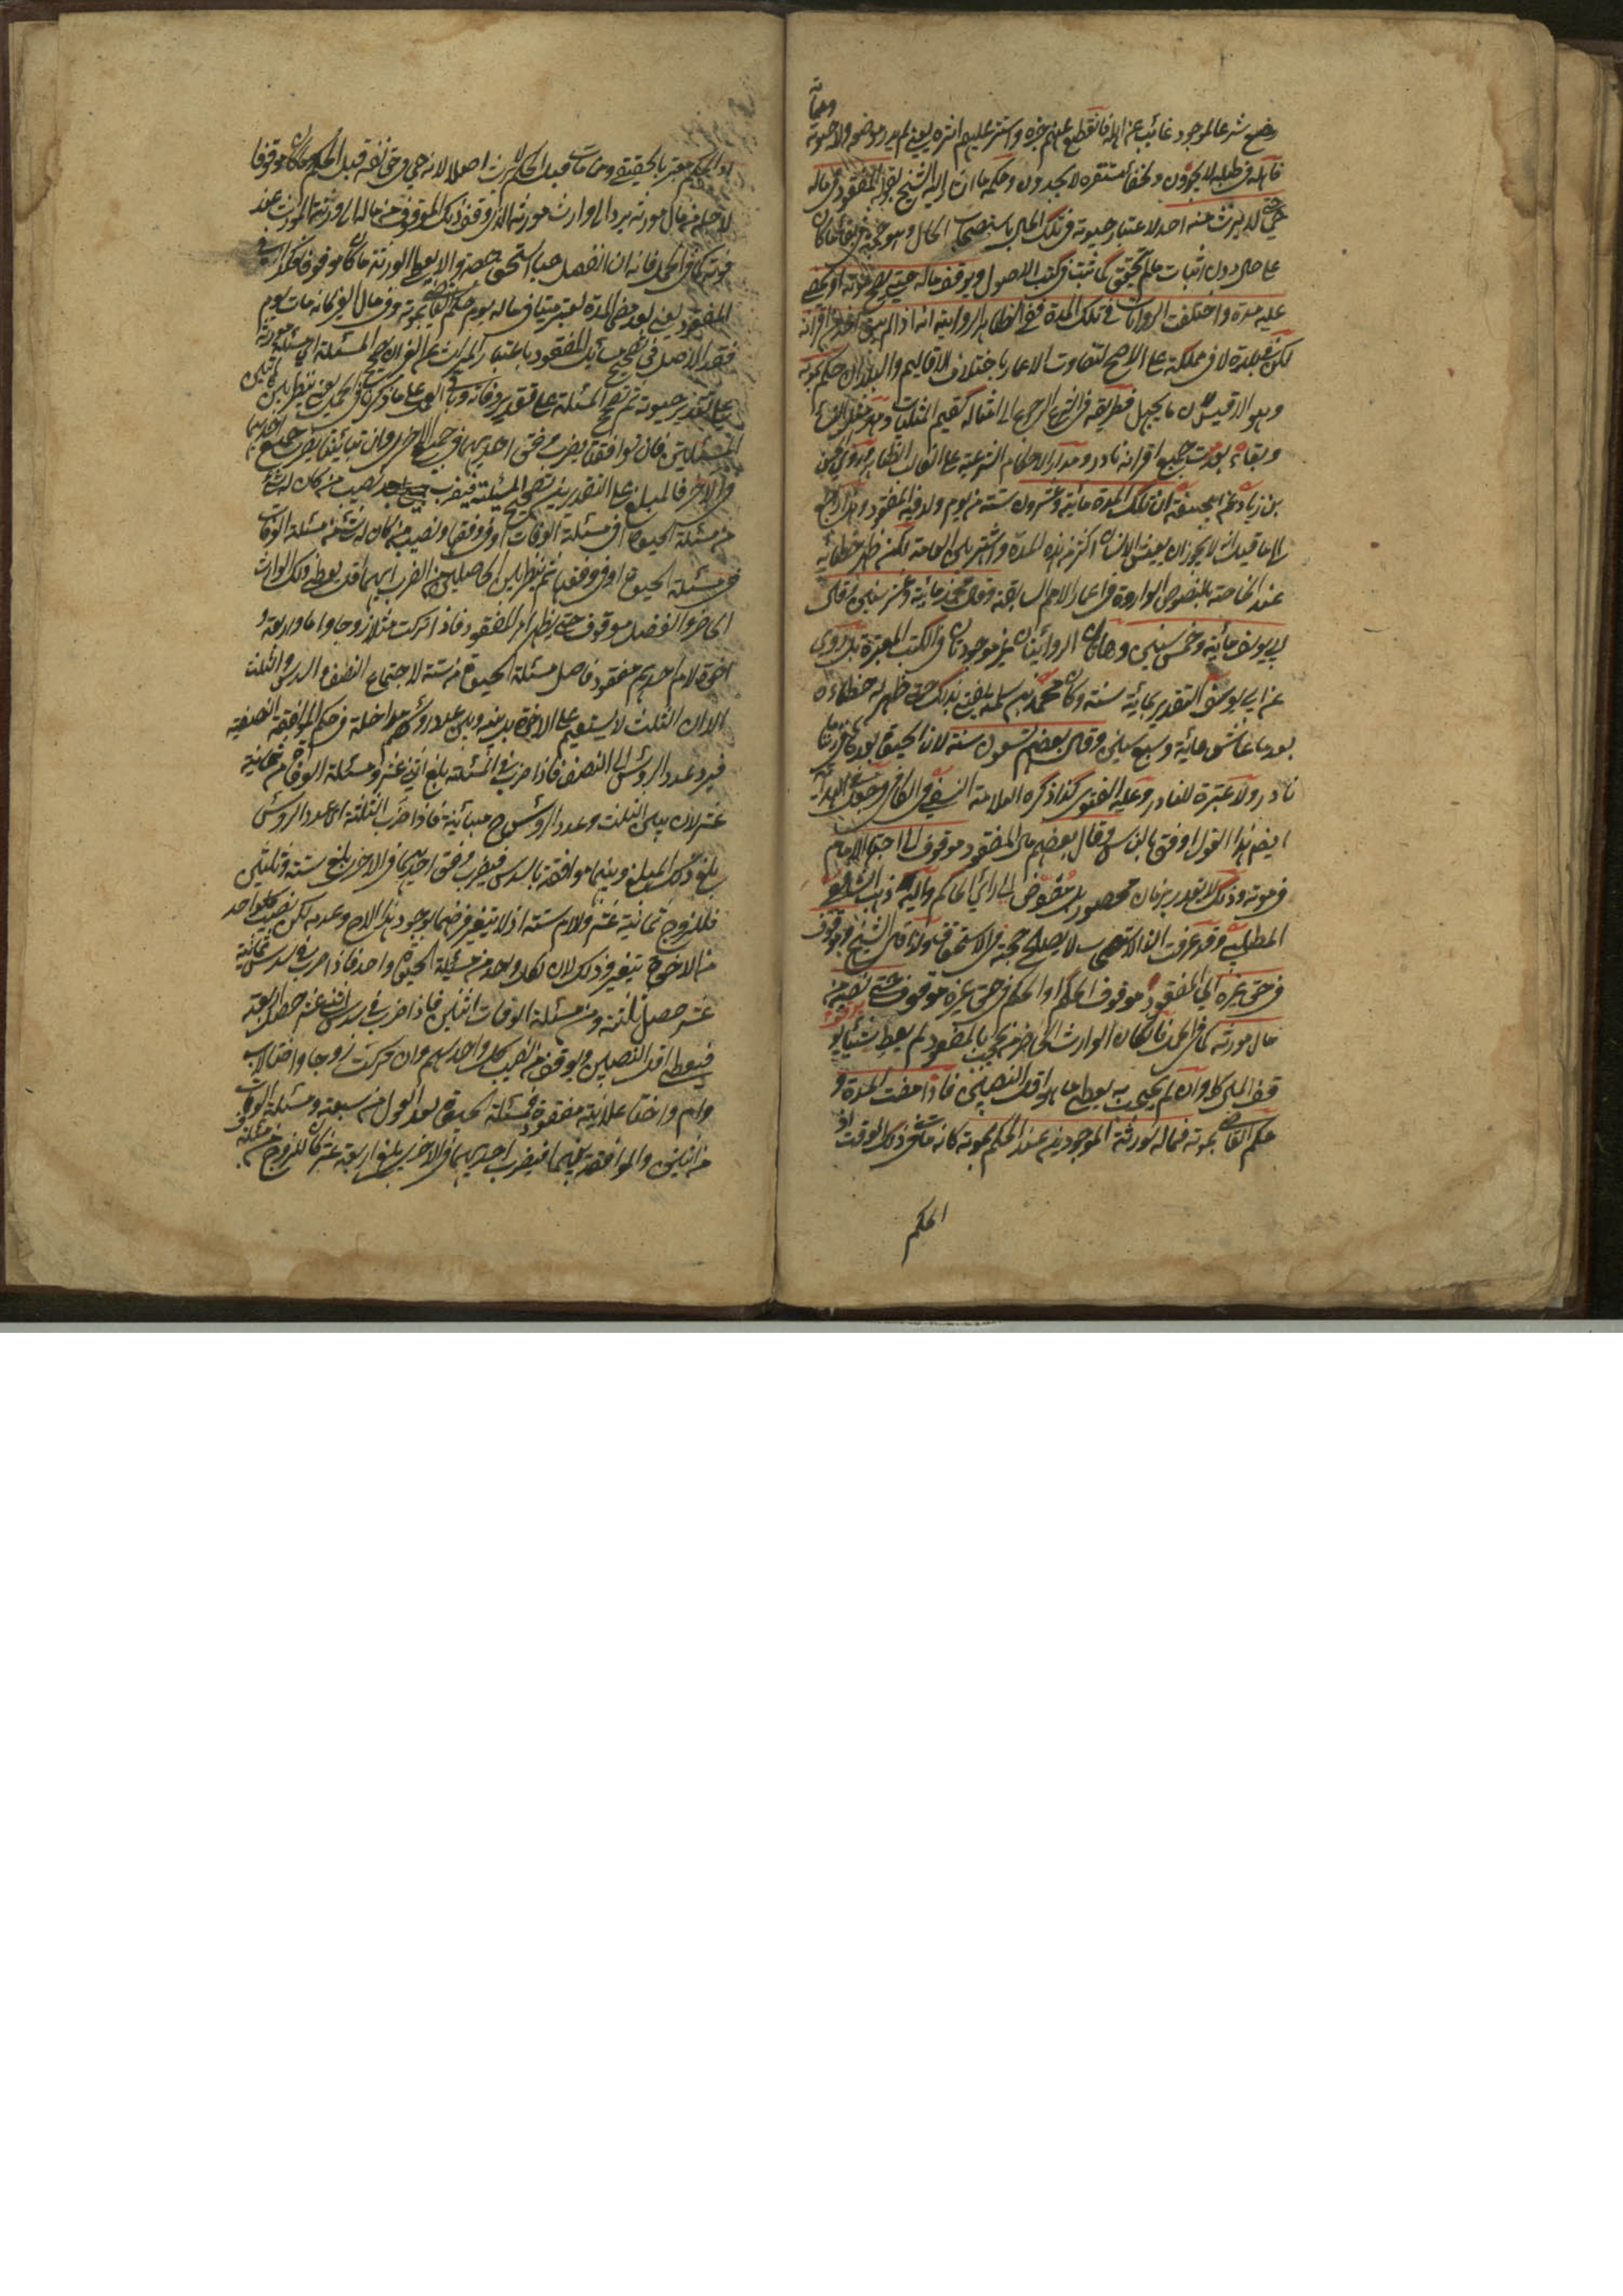 ومماته
وضع شرعا لموجود غائب عن اهله فانقطع عنهم خبره واستتر عليهم اثره يعني لم يدر موضعه ولا حيوته
فاهله في طلبه لا يجدون ولخفاء مستقره لا يجدون وحكمه ما اشار اليه الشيخ بقوله المفقود في ماله
حي حتى لا يرث منه احد لاعتبار حيوته في تلك الحال باستصحاب الحال وهو حجة في بقاء ما كان
على حاله دون اثبات ما لم يتحقق كما ثبت في كتب الاصول ويوقف ماله حتى يصح موته او يمضي
عليه مدة واختلفت الروايات في تلك المدة ففي الظاهر الرواية انه اذا لم يبق احد من اقرانه
لكن في بلدة لا في مملكة على الاصح لتفاوت الاعمار باختلاف الاقاليم والبلدان حكم بموته
وهو الاقيس لان ما يجهل فطريقه في الشرع الرجوع الى امثاله كقيم المتلفات ومهر مثل النساء
وبقاءه بعد موت جميع اقرانه نادر ومدار الاحكام الشرعية على الغالب الظاهر وروى الحسن
بن زياد عن ابي حنيفة ان تلك المدة مائة وعشرون سنة من يوم ولد فيه المفقود وهذا راجع
الى ما قيل انه لا يجوز ان يعيش الانسان اكثر من هذه المدة واشتهر بين العامة لكن ظهر خطائه
عند الخاصة بالنصوص الواردة في اعمار الامم السابقة وقال محمد مائة وعشر سنين وقال
ابي يوسف مائة وخمس سنين وهاتان الروايتان غير موجودتان في الكتب المعتبرة بل روي
عن ابي يوسف التقدير بمائة سنة وكان محمد بن سلمة يفتي بذلك حتى ظهر له خطاءه
بعد ما عاش مائة وسبع سنين وقال بعضهم تسعون سنة لان الحيوة بعدها في زماننا
نادر ولا عبرة للنادر وعليه الفتوى كذا ذكره العلامة النسفي في الكافي وجعله صاحب الهداية
ايضا هذا القول اوفق بالناس وقال بعضهم مال المفقود موقوف الى اجتهاد الامام
في موته وذلك لا يقدر بزمان محصور بل مفوض الى رائي الحاكم واليه ذهب الشافعي
المطلبي وقد عرفت ان الاستصحاب لا يصلح حجة في الاستحقاق ولذا قال الشيخ وموقوف
في حق غيره اي المفقود موقوف الحكم او الحكم في حق غيره موقوف حتى نصيبه من
مال مورثه كما في الحمل فان كان الوارث الحاضر ممن يحجب بالمفقود لم يعط شيئا بل يو
قف المال كله وان لم يحجب به يعطى ما هو اقل النصيبين فاذا مضت المدة و
حكم القاضي بموته فماله لورثته الموجودين عند الحكم بموته كانه مات في ذلك الوقت اذ
الحكم
اذ الحكم معتبر بالحقيقي ومن مات قبل الحكم لا يرث اصلا لانه حي في حق نفسه قبل الحكم وما كان موقوفا
لاجله من مال مورثه يرد الى وارث مورثه الذي وقف ذلك الموقوف من ماله الى ورثة المورث عند
موته كما في الحمل فانه ان انفصل حيا استحق حصته والا يعطى الورثة ما كان موقوفا فكذا
المفقود يعني بعد مضي المدة يعتبر ميتا في ماله يوم حكم القاضي بموته وفي مال الغير كانه مات يوم
فقد الاصل في تصحيح مسائل المفقود باعتبار الميراث عن الغير ان تصحح المسئلة اي مسئلة مورثه
على تقدير حيوته ثم تصحح المسئلة على تقدير وفاته وباقي العمل على ما ذكرنا في الحمل يعني ينظر بين
المسئلتين فان توافقتا يضرب وفق احديهما في جميع الاخرى وان تباينتا يضرب جميع احديهما
في الاخر فالمبلغ على التقديرين تصحيح المسئلة فيضرب نصيب من كان له شئ
من مسئلة الحيوة في مسئلة الوفات او في وفقها ونصيب من كان له شئ من مسئلة الوفات
في مسئلة الحيوة او في وفقها ثم ينظر بين الحاصلين من الضرب ايهما اقل يعطى ذلك الوارث
الحاضر والفضل موقوف حتى يظهر امر المفقود فاذا تركت مثلا زوجا واما واربعة
اخوة لام احدهم مفقود فاصل مسئلة الحيوة من ستة لاجتماع النصف والسدس والثلث
الا ان الثلث لا يستقيم على الاخوة وبينه وبين عدد رؤسهم مداخلة في حكم الموافقة النصفية
فيرد عدد الرؤس الى النصف فاذا ضرب في المسئلة بلغ اثني عشر ومسئلة الوفات من ثمانية
عشر لان بين الثلث وعدد الرؤس ح مباينة فاذا ضرب الثلثة اي عدد الرؤس
بلغ ذلك المبلغ وبينهما موافقة بالسدس فيضرب وفق احديهما في الاخر يبلغ ستة وثلثين
فللزوج ثمانية عشر وللام ستة اذ لا يتغير فرضهما بوجود هذا الاخ وعدمه لكن نصيب كل واحد
من الاخوة يتغير وذلك لان لكل واحد من مسئلة الحيوة واحد فاذا ضرب في سدس ثمانية
عشر حصل ثلثة ومن مسئلة الوفات اثنين فاذا ضرب في سدس اثني عشر حصل اربعة
فيعطى اقل النصيبين ويوقف من نصيب كل واحد سهم وان تركت زوجا واختا لاب
وام واختا علاتية مفقودة فمسئلة الحيوة بعد العول من سبعة ومسئلة الوفات
من اثنين والموافقة بينهما فيضرب احديهما في الاخرى يبلغ اربعة عشر كان للزوج من مسئلة